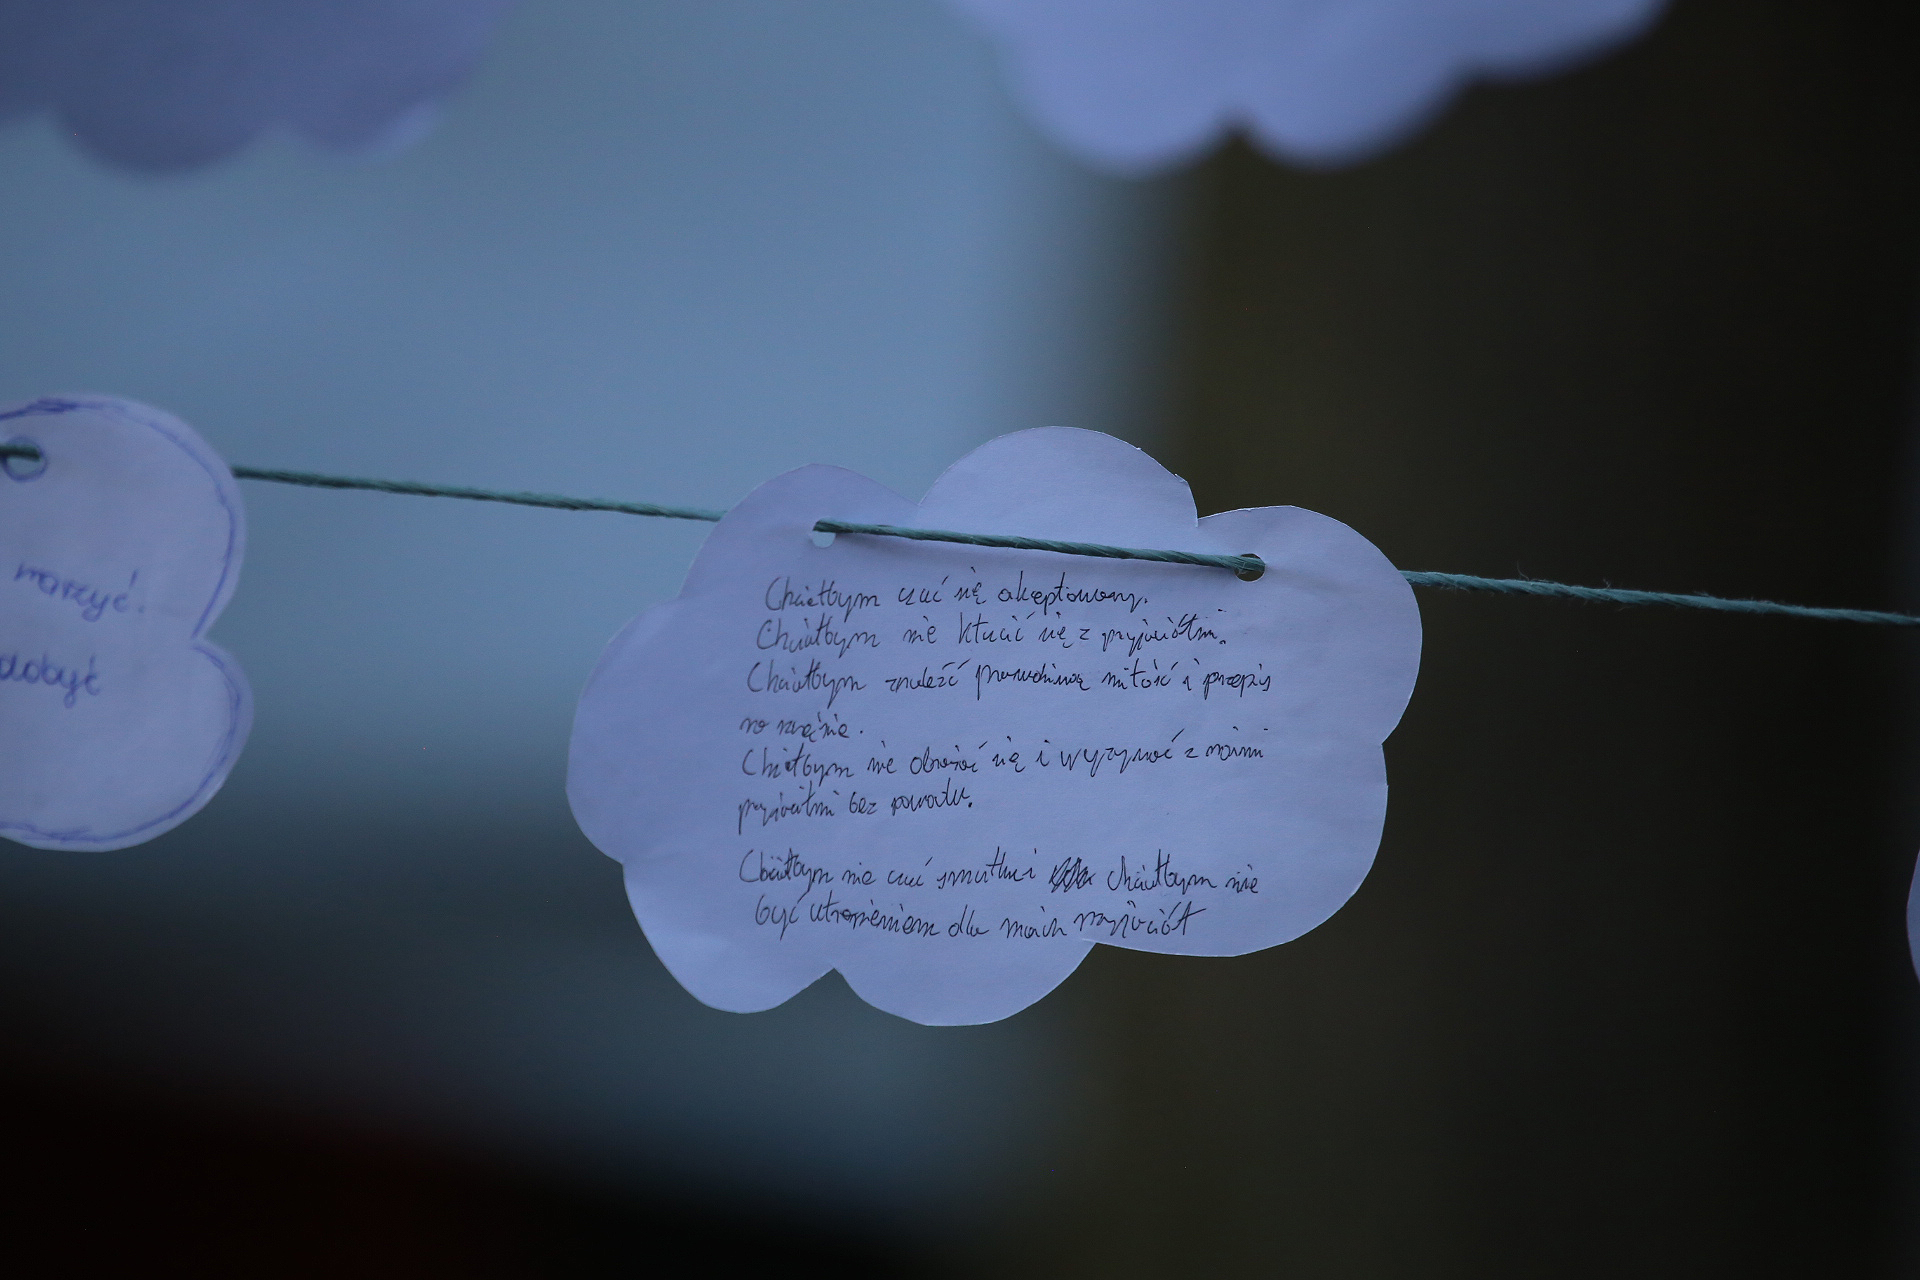 marzyć.
dobyć
Chciałbym czuć się akceptowany.
Chciałbym nie kłócić się z przyjaciółmi.
Chciałbym znaleźć prawdziwą miłość i przepis
na szczęście.
Chciałbym nie obrażać się i wyzywać z moimi
przyjaciółmi bez powodu.
Chciałbym nie czuć smutku i chciałbym nie
być utrapieniem dla moich przyjaciół